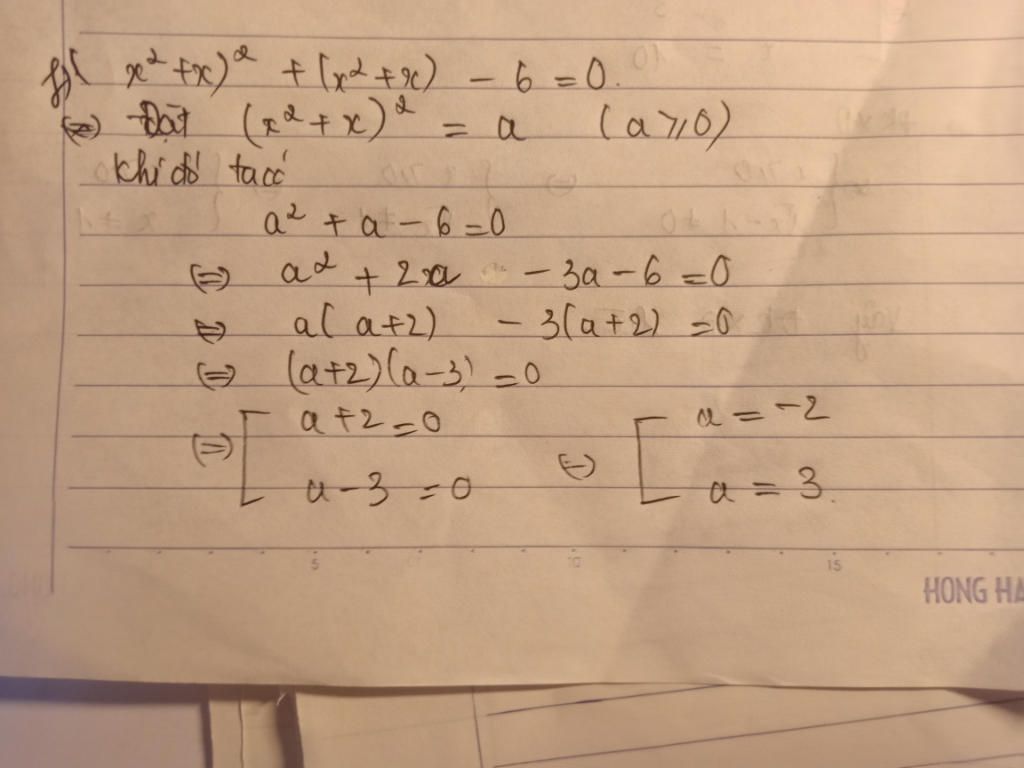 f) (x² + x)² + (x² + x) - 6 = 0.
(=) Đặt (x² + x)² = a (a ⩾ 0)
Khi đó ta có
a² + a - 6 = 0
(=) a² + 2a - 3a - 6 = 0
(=) a( a+2) - 3(a+2) = 0
(=) (a+2)(a-3) = 0
(=) [ a + 2 = 0 (=) [ a = -2
a - 3 = 0 a = 3.
5 10 15
HONG HA